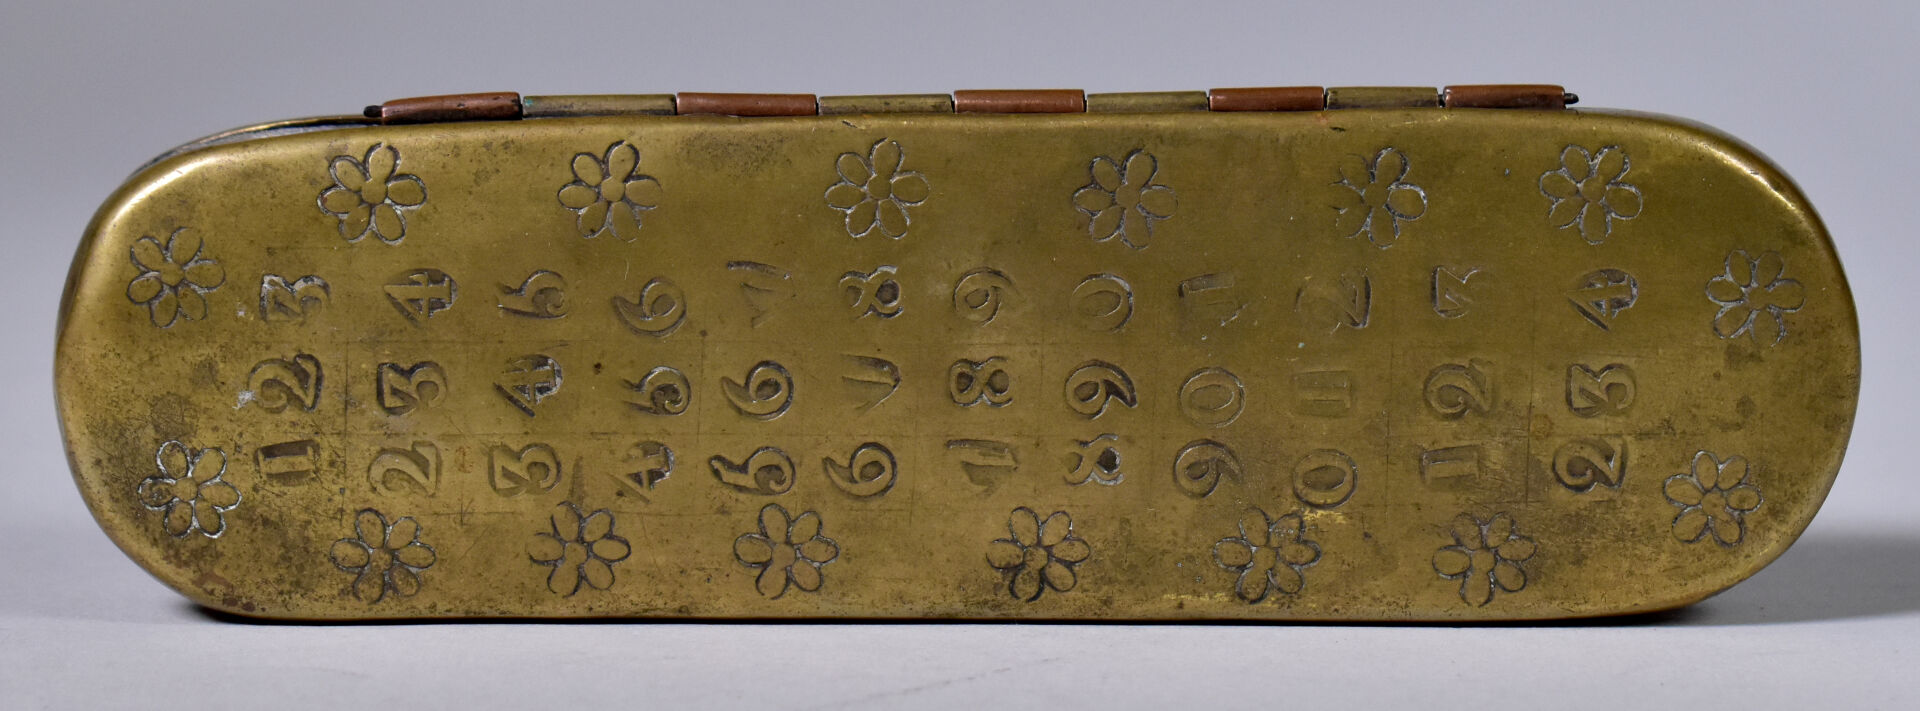 1 2 3
2 3 4
3 4 5
4 5 6
5 6 7
6 7 8
7 8 9
8 9 0
9 0 1
0 1 2
1 2 3
2 3 4